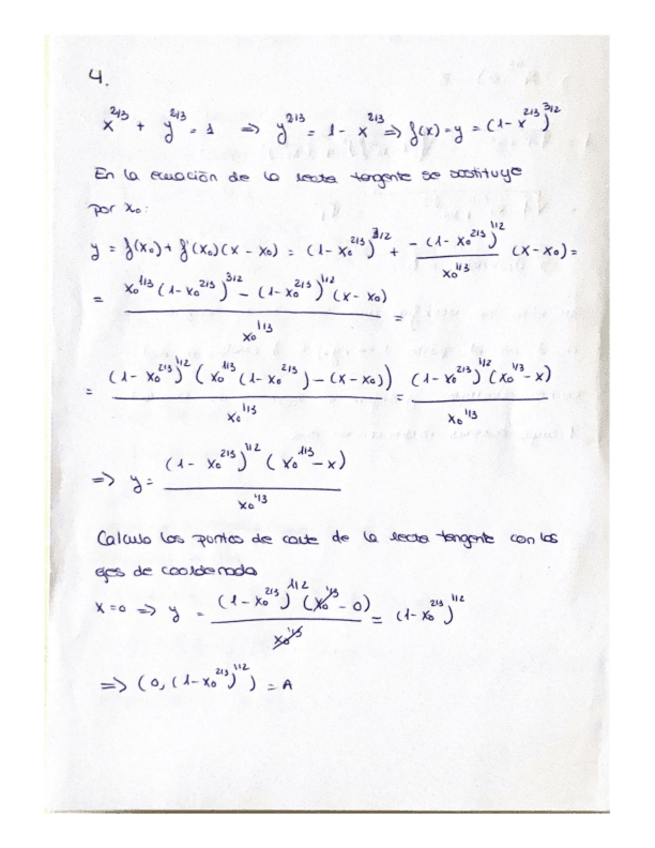 4.
x^{2/3} + y^{2/3} = 1 => y^{2/3} = 1 - x^{2/3} => f(x) = y = (1 - x^{2/3})^{3/2}
En la ecuación de la recta tangente se sustituye
por x₀:
y = f(x₀) + f'(x₀)(x - x₀) = (1 - x₀^{2/3})^{3/2} + \frac{-(1 - x₀^{2/3})^{1/2}}{x₀^{1/3}} (x - x₀) =
= \frac{x₀^{1/3} (1 - x₀^{2/3})^{3/2} - (1 - x₀^{2/3})^{1/2} (x - x₀)}{x₀^{1/3}} =
= \frac{(1 - x₀^{2/3})^{1/2} (x₀^{1/3} (1 - x₀^{2/3}) - (x - x₀))}{x₀^{1/3}} = \frac{(1 - x₀^{2/3})^{1/2} (x₀^{1/3} - x)}{x₀^{1/3}}
=> y = \frac{(1 - x₀^{2/3})^{1/2} (x₀^{1/3} - x)}{x₀^{1/3}}
Calculo los puntos de corte de la recta tangente con los
ejes de coordenada
x = 0 => y = \frac{(1 - x₀^{2/3})^{1/2} (x₀^{1/3} - 0)}{x₀^{1/3}} = (1 - x₀^{2/3})^{1/2}
=> (0, (1 - x₀^{2/3})^{1/2}) = A